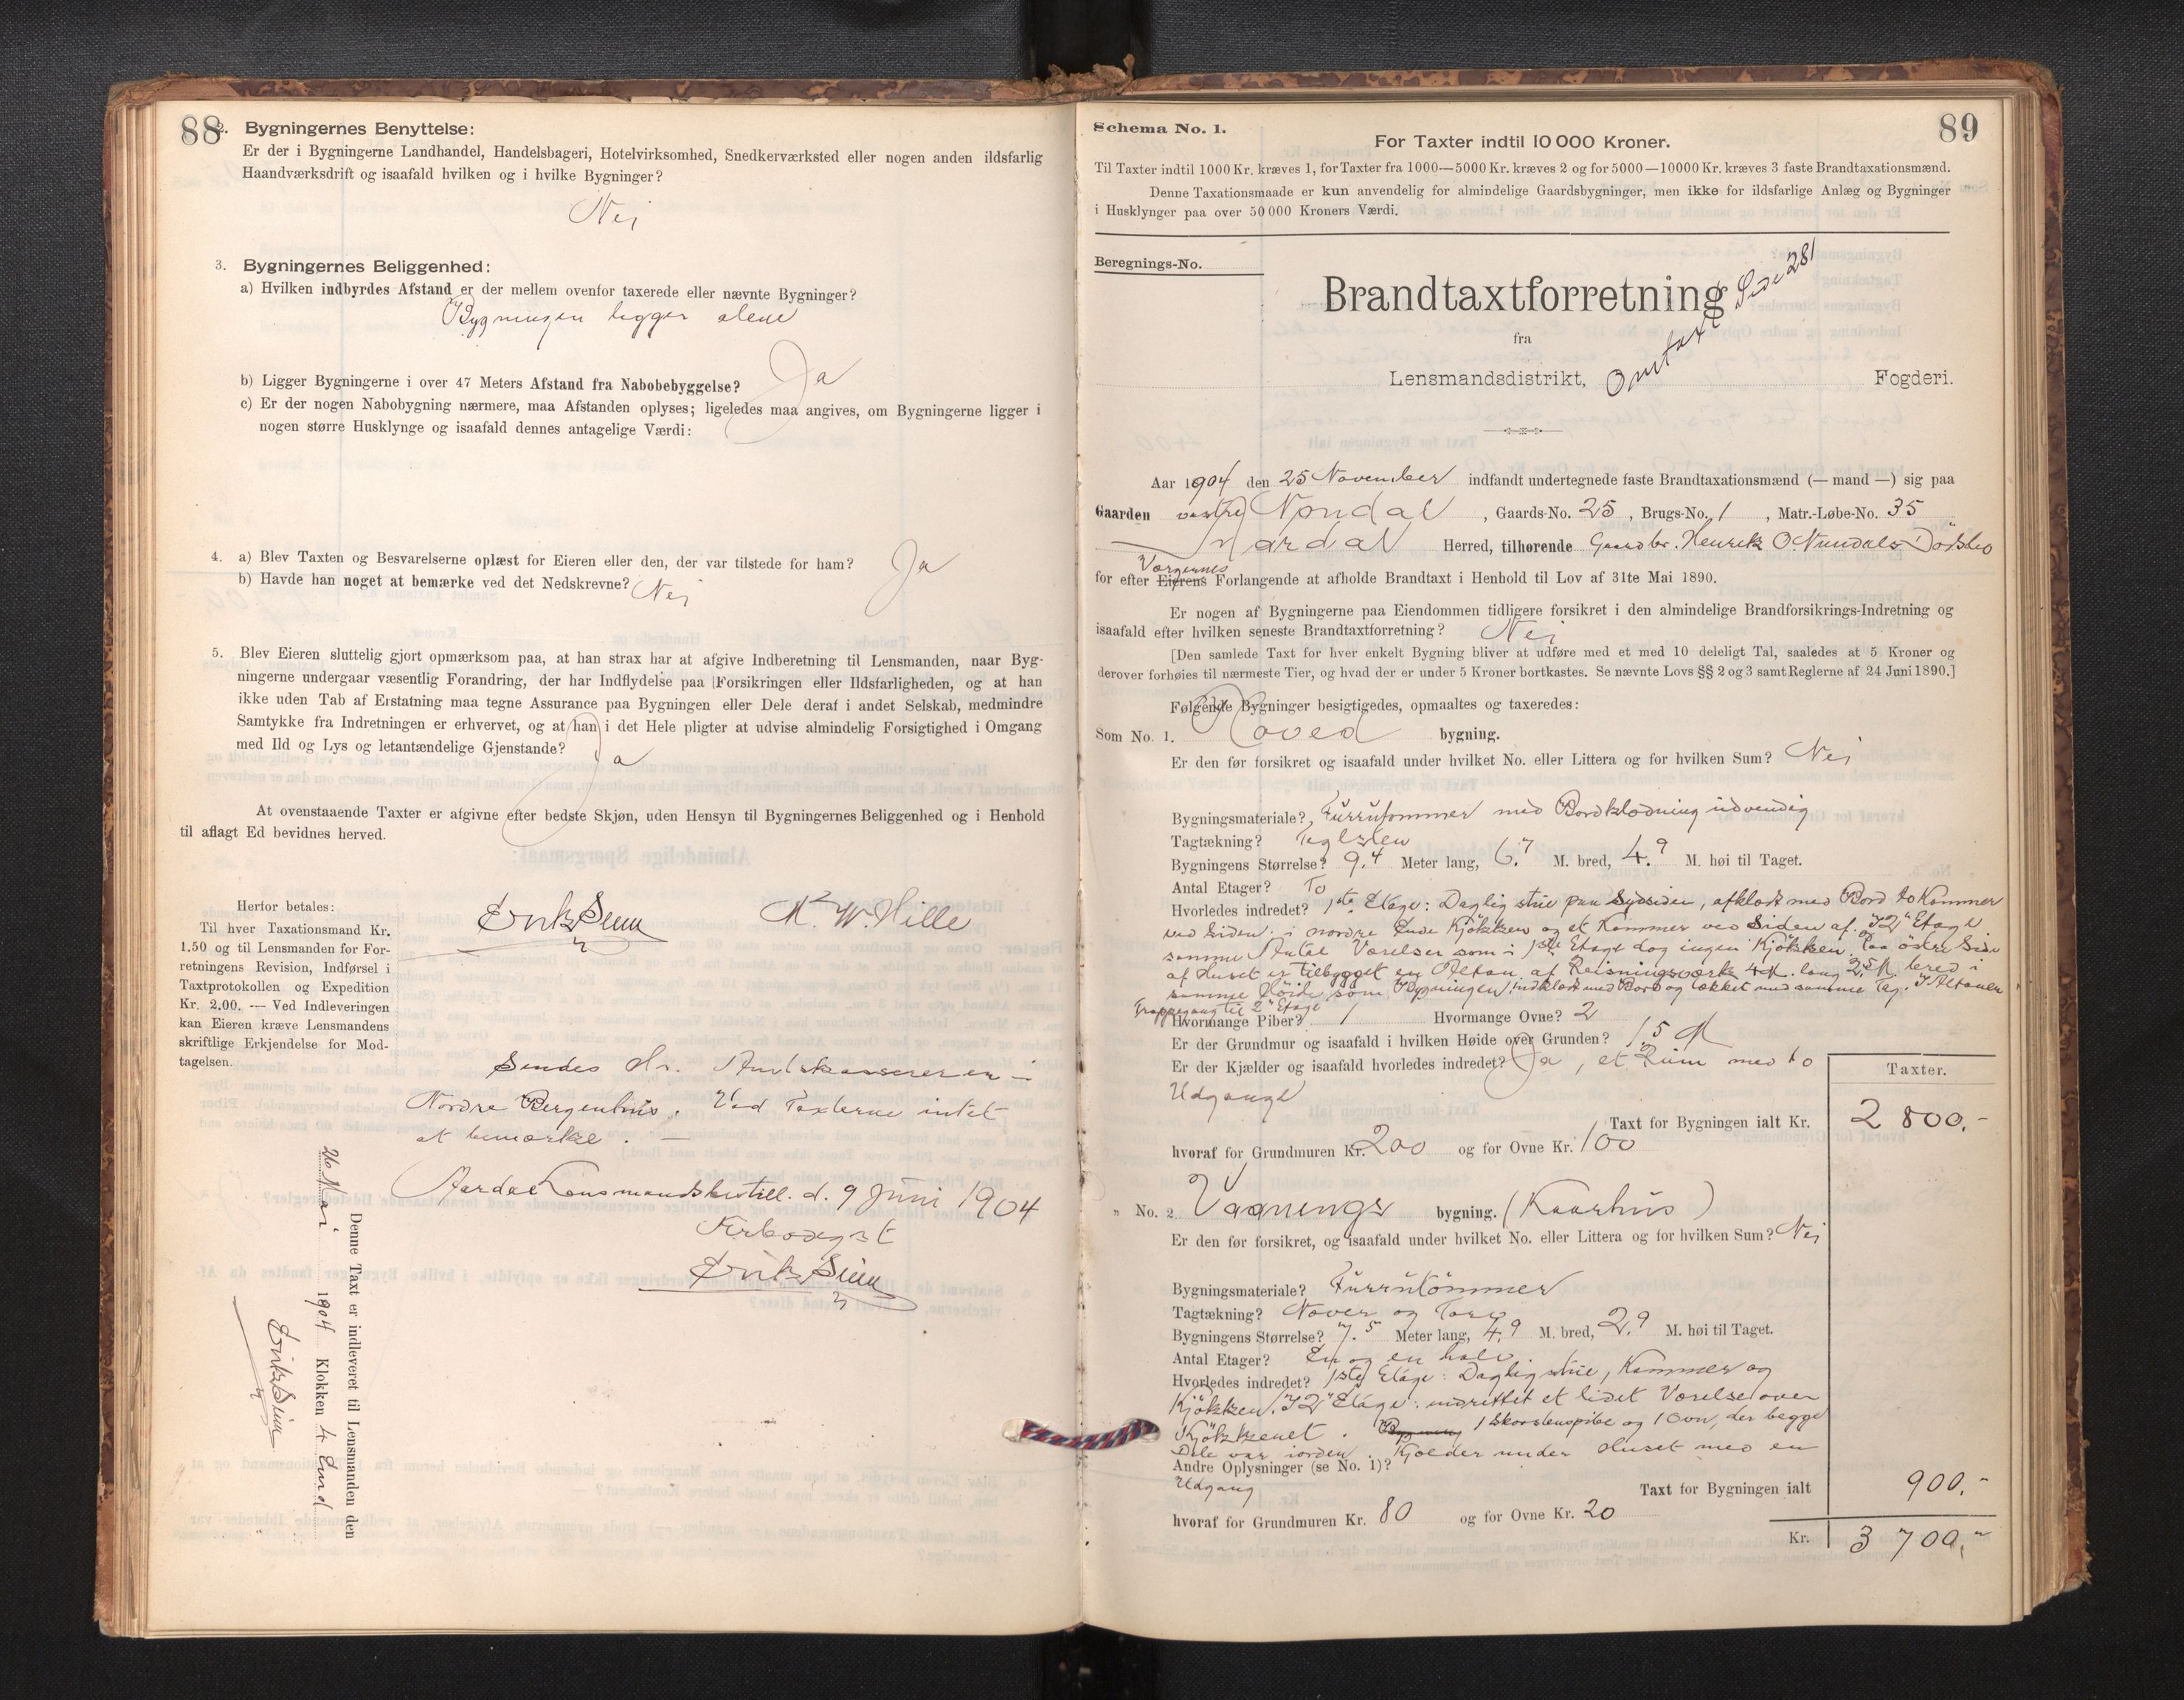 88
2. Bygningernes Benyttelse:
Er der i Bygningerne Landhandel, Handelsbageri, Hotelvirksomhed, Snedkerværksted eller nogen anden ildsfarlig
Haandværksdrift og isaafald hvilken og i hvilke Bygninger?
Nei
3. Bygningernes Beliggenhed:
a) Hvilken indbyrdes Afstand er der mellem ovenfor taxerede eller nævnte Bygninger?
Bygningen ligger alene
b) Ligger Bygningerne i over 47 Meters Afstand fra Nabobebyggelse? Ja
c) Er der nogen Nabobygning nærmere, maa Afstanden oplyses; ligeledes maa angives, om Bygningerne ligger i
nogen større Husklynge og isaafald dennes antagelige Værdi:
4. a) Blev Taxten og Besvarelserne oplæst for Eieren eller den, der var tilstede for ham? Ja
b) Havde han noget at bemærke ved det Nedskrevne? Nei
5. Blev Eieren sluttelig gjort opmærksom paa, at han strax har at afgive Indberetning til Lensmanden, naar Byg-
ningerne undergaar væsentlig Forandring, der har Indflydelse paa Forsikringen eller Ildsfarligheden, og at han
ikke uden Tab af Erstatning maa tegne Assurance paa Bygningen eller Dele deraf i andet Selskab, medmindre
Samtykke fra Indretningen er erhvervet, og at han i det Hele pligter at udvise almindelig Forsigtighed i Omgang
med Ild og Lys og letantændelige Gjenstande?
Ja
At ovenstaaende Taxter er afgivne efter bedste Skjøn, uden Hensyn til Bygningernes Beliggenhed og i Henhold
til aflagt Ed bevidnes herved.
Erik Siem M. W. Hille
Herfor betales:
Til hver Taxationsmand Kr.
1.50 og til Lensmanden for For-
retningens Revision, Indførsel i
Taxtprotokollen og Expedition
Kr. 2.00. — Ved Indleveringen
kan Eieren kræve Lensmandens
skriftlige Erkjendelse for Mod-
tagelsen.
Sendes Hr. Amtskassereren i
Nordre Bergenhus. Ved Taxterne intet
at bemærke. —
Aardal Lensmandsbestill. d. 9 Juni 1904
Ærbødigst
Erik Siem
Denne Taxt er indleveret til Lensmanden den
26 Mai 1904 Klokken 4 Emd
Erik Siem
89
Schema No. 1.
For Taxter indtil 10 000 Kroner.
Til Taxter indtil 1000 Kr. kræves 1, for Taxter fra 1000—5000 Kr. kræves 2 og for 5000—10000 Kr. kræves 3 faste Brandtaxationsmænd.
Denne Taxationsmaade er kun anvendelig for almindelige Gaardsbygninger, men ikke for ildsfarlige Anlæg og Bygninger
i Husklynger paa over 50 000 Kroners Værdi.
Beregnings-No.
Brandtaxtforretning
Omtaxt Side 281
fra
Lensmandsdistrikt, Fogderi.
Aar 1904 den 25 November indfandt undertegnede faste Brandtaxationsmænd (— mand —) sig paa
Gaarden vestre Nundal, Gaards-No. 25, Brugs-No. 1, Matr.-Løbe-No. 35
Aardal Herred, tilhørende Gaardbr. Henrik O. Nundals Dødsbo
Værgernes
for efter Eierens Forlangende at afholde Brandtaxt i Henhold til Lov af 31te Mai 1890.
Er nogen af Bygningerne paa Eiendommen tidligere forsikret i den almindelige Brandforsikrings-Indretning og
isaafald efter hvilken seneste Brandtaxtforretning? Nei
[Den samlede Taxt for hver enkelt Bygning bliver at udføre med et med 10 deleligt Tal, saaledes at 5 Kroner og
derover forhøies til nærmeste Tier, og hvad der er under 5 Kroner bortkastes. Se nævnte Lovs §§ 2 og 3 samt Reglerne af 24 Juni 1890.]
Følgende Bygninger besigtigedes, opmaaltes og taxeredes:
Som No. 1. Hoved bygning.
Er den før forsikret og isaafald under hvilket No. eller Littera og for hvilken Sum? Nei
Bygningsmateriale? Furrutømmer med Bordklædning udvendig
Tagtækning? Teglsten
Bygningens Størrelse? 9.4 Meter lang, 6.7 M. bred, 4.9 M. høi til Taget.
Antal Etager? To
Hvorledes indredet? 1ste Etage: Daglig stue paa Sydsiden, afklædt med Bord to Kammer
ved Siden. i nordre Ende Kjøkken og et Kammer ved Siden af. I 2den Etage
samme Antal Værelser som i 1ste Etage dog ingen Kjøkken. Paa østre Side
af Huset er tilbygget en Altan af Reisningsværk 4 M. lang 2.5 M. bred i
samme Høide som Bygningen, indklædt med Bord og tækket med samme Tag. I Altanen
Trappegang til 2den Etage
Hvormange Piber? 1 Hvormange Ovne? 2
Er der Grundmur og isaafald i hvilken Høide over Grunden? 1.5 M
Er der Kjælder og isaafald hvorledes indredet? Ja, et Rum med to
Udgange
Taxter.
Taxt for Bygningen ialt Kr. 2 800.-
hvoraf for Grundmuren Kr. 200 og for Ovne Kr. 100
" No. 2 Vaanings bygning. (Kaarhus)
Er den før forsikret, og isaafald under hvilket No. eller Littera og for hvilken Sum? Nei
Bygningsmateriale? Furrutømmer
Tagtækning? Næver og Torv
Bygningens Størrelse? 7.5 Meter lang, 4.9 M. bred, 2.9 M. høi til Taget.
Antal Etager? En og en halv.
Hvorledes indredet? 1ste Etage: Daglig stue, Kammer og
Kjøkken. I 2den Etage: indrettet et lidet Værelse over
Kjøkkenet. 1 Skorstenspibe og 1 Ovn, der begge
Dele var iorden. Kjælder under Huset med en
Andre Oplysninger (se No. 1)?
Udgang
Taxt for Bygningen ialt 900.-
hvoraf for Grundmuren Kr. 80 og for Ovne Kr. 20
Kr. 3 700.-